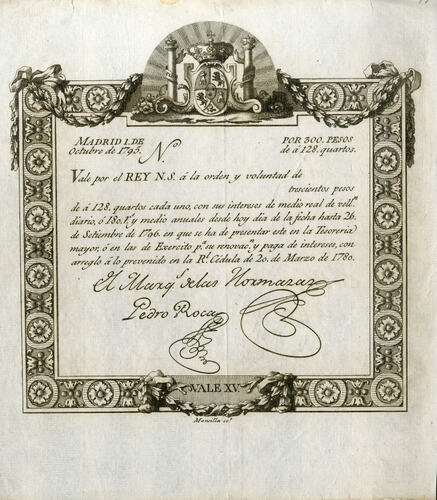 MADRID 1. DE
Octubre de 1795.
N.
POR 300. PESOS
de á 128. quartos.
Vale por el REY N.S. á la orden y voluntad de
trescientos pesos
de á 128. quartos cada uno, con sus intereses de medio real de vell.ⁿ
diario, ó 180 r.ˢ y medio anuales desde hoy dia de la fecha hasta 26.
de Setiembre de 1796. en que se ha de presentar este en la Tesoreria
mayor, ó en las de Exercito p.ª su renovac.ⁿ y paga de intereses, con
arreglo á lo prevenido en la R.ˡ Cédula de 20. de Marzo de 1780.
El Marq.ˢ de las Hormazas
Pedro Roca
VALE XV.
Mansilla sc.ᵗ